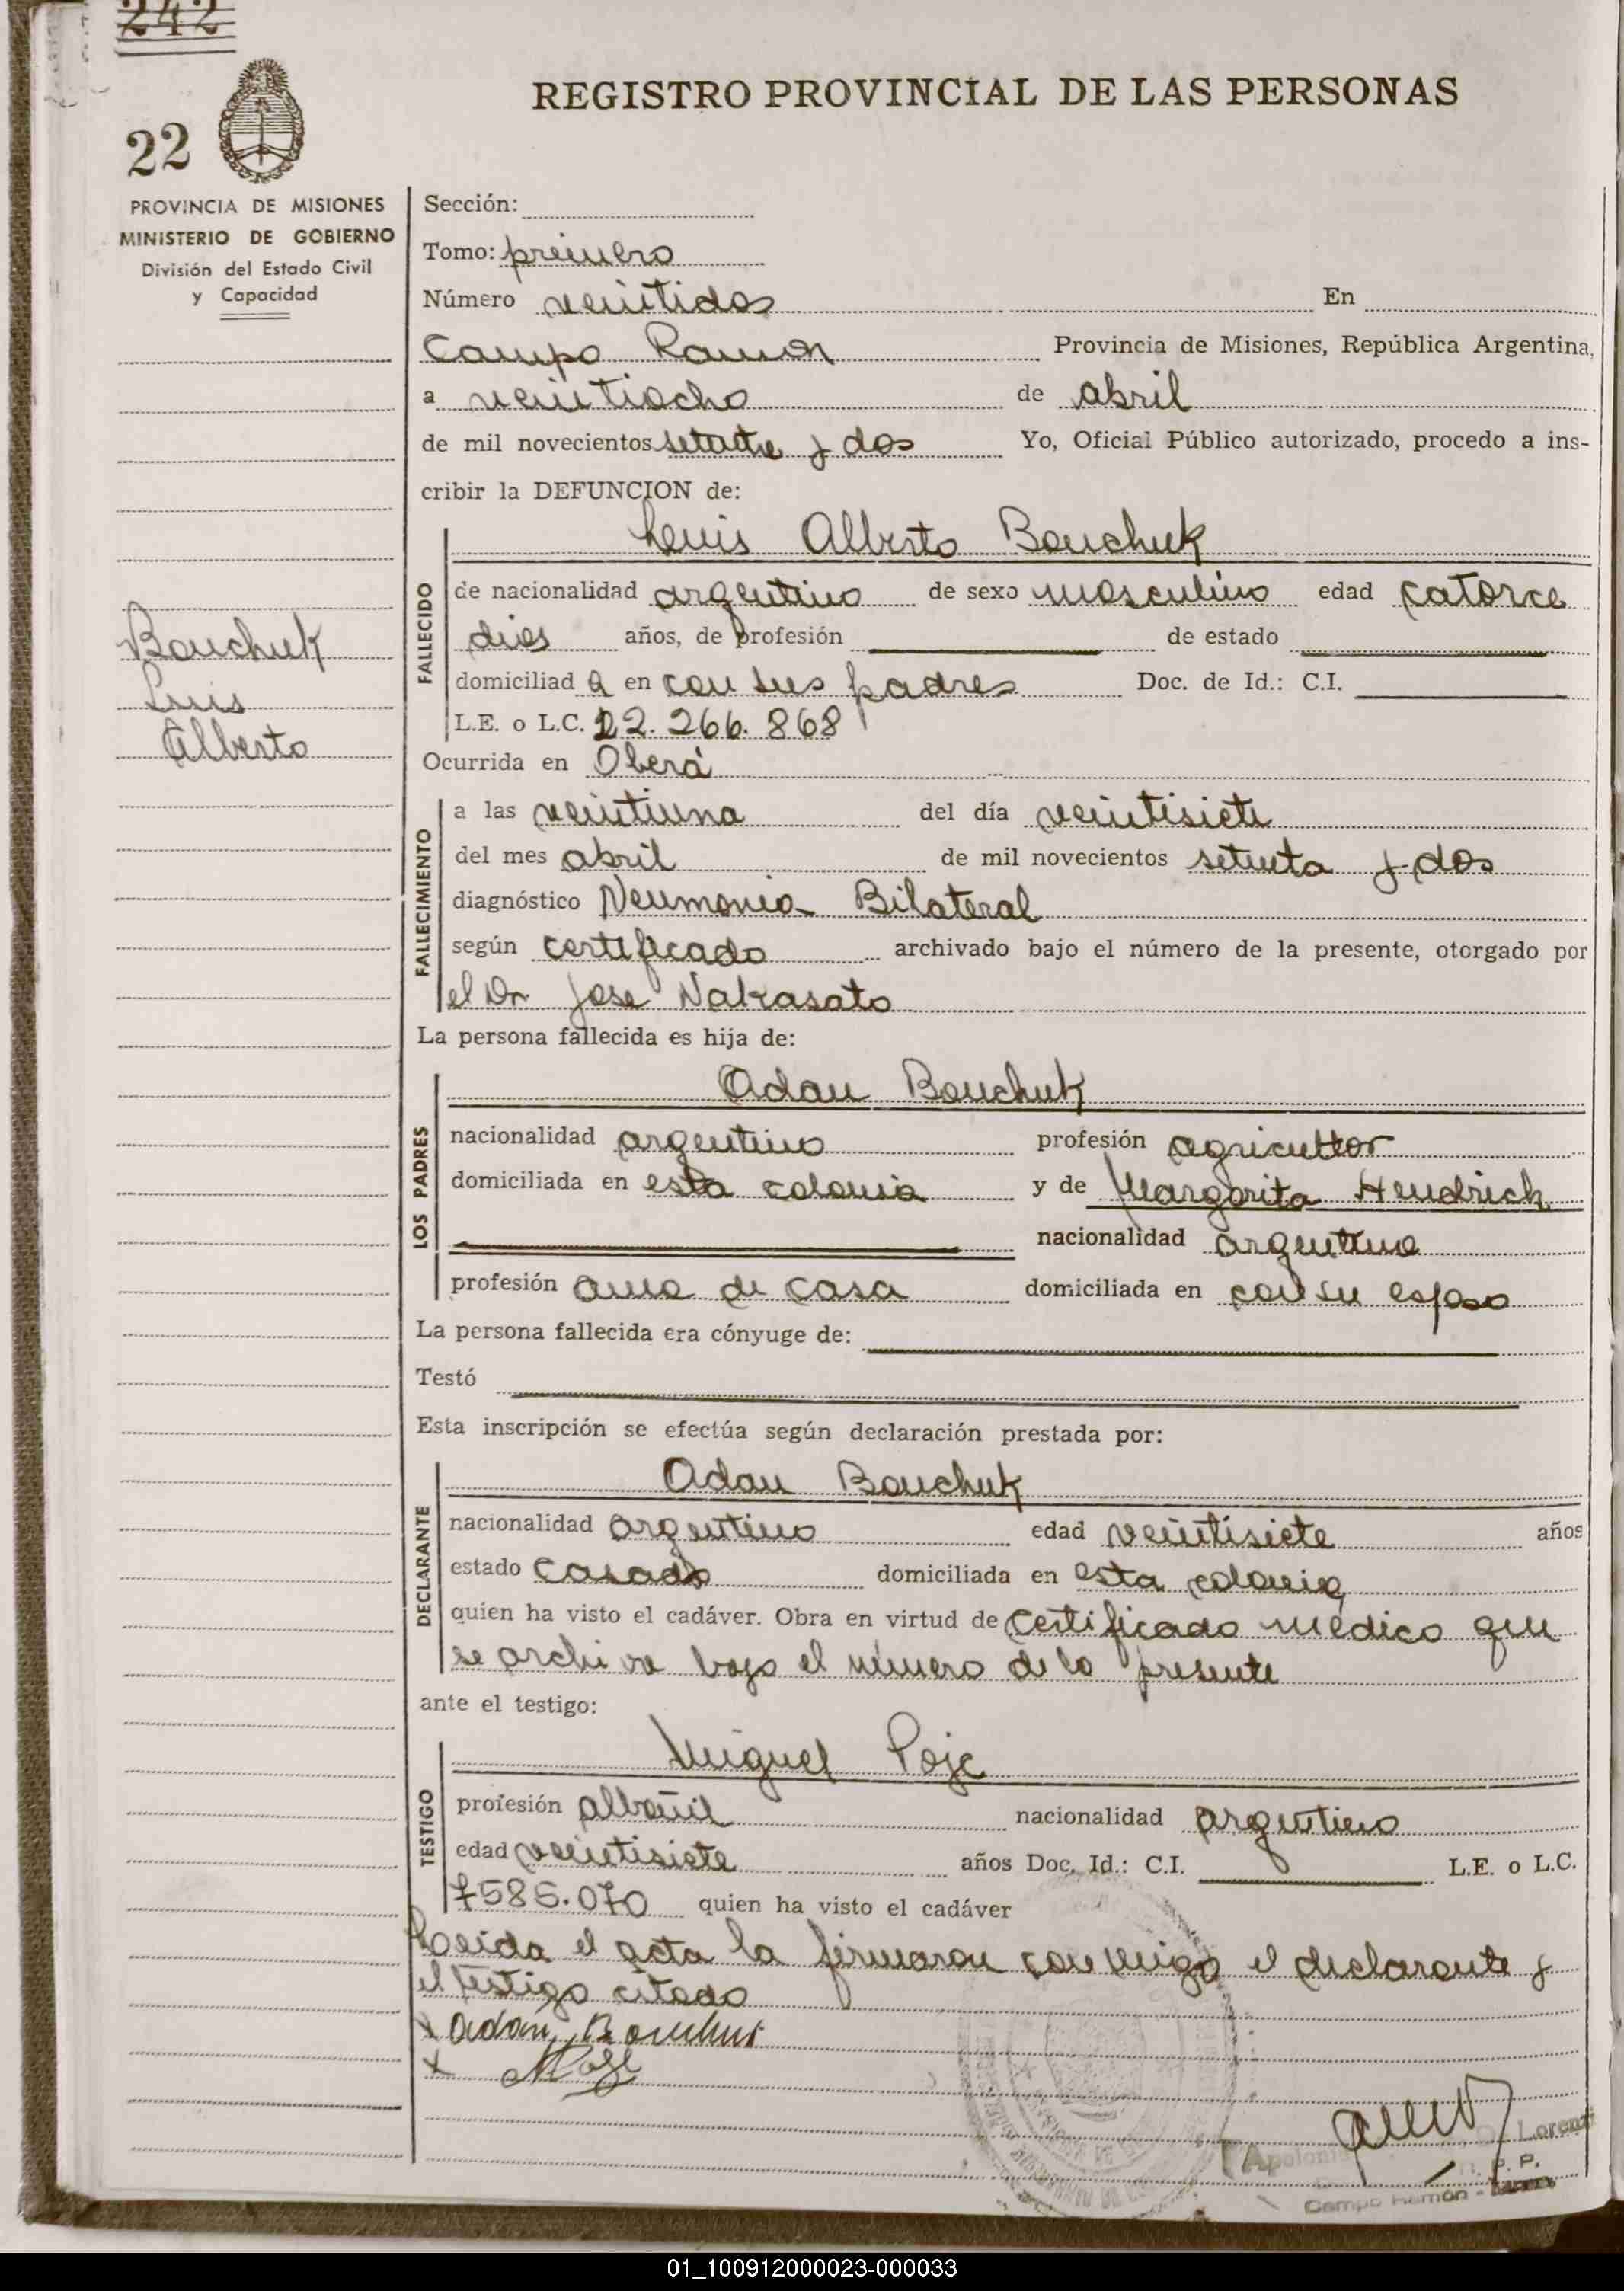 242
22
REGISTRO PROVINCIAL DE LAS PERSONAS
PROVINCIA DE MISIONES
MINISTERIO DE GOBIERNO
División del Estado Civil
y Capacidad
Sección:
Tomo: primero
Número veintidos En
Campo Ramon Provincia de Misiones, República Argentina,
a veintiocho de abril
de mil novecientos setenta y dos Yo, Oficial Público autorizado, procedo a ins-
cribir la DEFUNCION de:
Luis Alberto Bouchuk
FALLECIDO
de nacionalidad argentino de sexo masculino edad catorce
dias años, de profesión de estado
domiciliad a en con sus padres Doc. de Id.: C.I.
L.E. o L.C. 22.266.868
Bouchuk
Luis
Alberto
Ocurrida en Oberá
FALLECIMIENTO
a las veintiuna del día veintisiete
del mes abril de mil novecientos setenta y dos
diagnóstico Neumonia Bilateral
según certificado archivado bajo el número de la presente, otorgado por
el Dr Jose Nakasato
La persona fallecida es hija de:
LOS PADRES
Adan Bouchuk
nacionalidad argentino profesión agricultor
domiciliada en esta colonia y de Margarita Hendrich
nacionalidad argentina
profesión ama de casa domiciliada en con su esposo
La persona fallecida era cónyuge de:
Testó
Esta inscripción se efectúa según declaración prestada por:
DECLARANTE
Adan Bouchuk
nacionalidad argentino edad veintisiete años
estado casado domiciliada en esta colonia
quien ha visto el cadáver. Obra en virtud de certificado medico que
se archiva bajo el número de la presente
ante el testigo:
TESTIGO
Miguel Poje
profesión albañil nacionalidad argentino
edad veintisiete años Doc. Id.: C.I. L.E. o L.C.
7585.070 quien ha visto el cadáver
Leida el acta la firmaron conmigo el declarante y
el testigo citado
x Adan Bouchuk
x MPoje
Apolonio D. Lorenzi
P. P.
Campo Ramón -
01_100912000023-000033